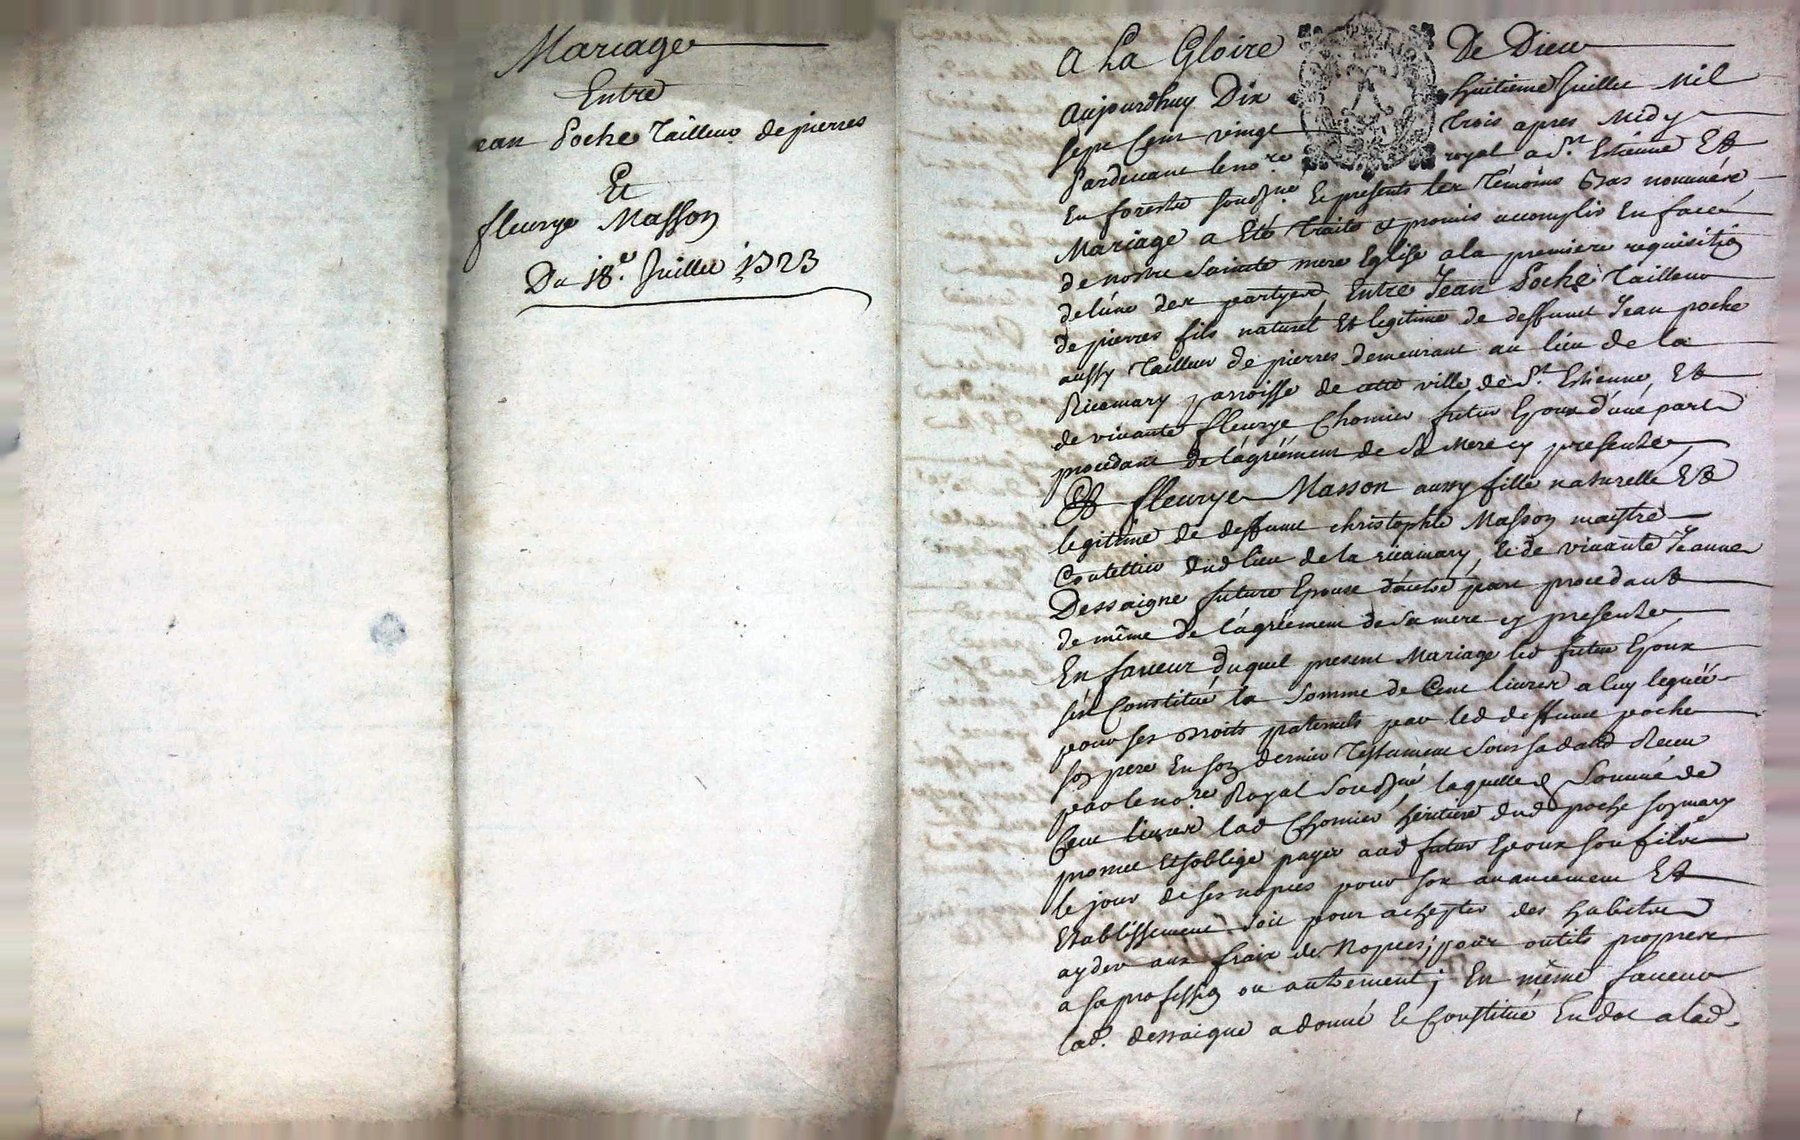 Mariage
Entre
ean Poche Tailleur de pierres
Et
fleurye Masson
Du 18.e Juillet 1723
A La Gloire De Dieu
Aujourdhuy Dix huitieme Juillet Mil
sept Cent vingt trois apres Midy
Pardevant le no.re royal a S.t Estienne Et
En forestz souss.né Et presents les Témoins Bas nommés
Mariage a Eté traité et promis accomplir En face
de nostre Sainte mere Eglise a la premiere requisition
de l'une des partyes, Entre Jean Poche Tailleur
de pierres fils naturel Et legitime de deffunct Jean poche
aussy Tailleur de pierres demeurant au lieu de la
Ricamary parroisse de cette ville de S.t Estienne, Et
de vivante fleurye Chomier futur Epoux d'une part
procedant de l'agréement de Sa Mere cy presente,
Et fleurye Masson aussy fille naturelle Et
legitime de deffunt christophle Masson maistre
Coutellier dud lieu de la ricamary, Et de vivante Jeanne
Dessaigne future Epouse d'autre part procedant
de même de l'agréement de sa mere cy presente,
En faveur duquel present Mariage led futur Epoux
s'est Constitué la Somme de Cent livres a luy leguée
pour ses droits paternels par led deffunt poche
son pere En son dernier Testament Sous sa datte Receu
par le no.re Royal Souss.né laquelle Somme de
Cent livres lad Chomier heritiere dud poche son mary
promet Et s'oblige payer aud futur Epoux son fils
le jour de ses nopces pour son avancement Et
Etablissement soit pour achepter des habits
ayder aux fraix de Nopces, pour outils propres
a sa profession ou autrement; En même faveur
lad. dessaigne a donné Et Constitué En dot a lad.